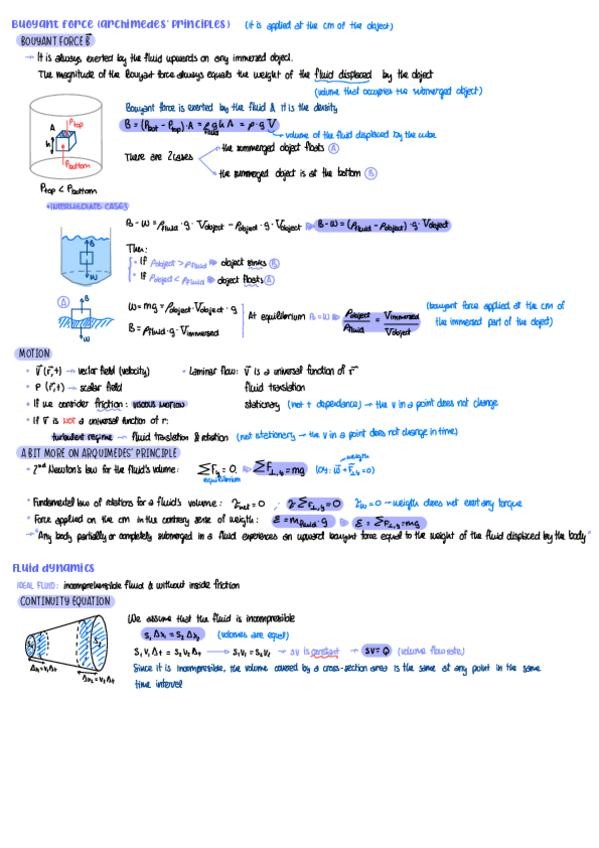 Buoyant force (archimedes' principles) (it is applied at the cm of the object)
BOUYANT FORCE B
→ It is always exerted by the fluid upwards on any immersed object.
The magnitude of the bouyant force always equals the weight of the fluid displaced by the object
(volume that occupies the submerged object)
Bouyant force is exerted by the fluid & it is the density
B = (Pbot - Ptop)·A = ρfluid g h A = ρ·g V
volume of the fluid displaced by the cube
There are 2 cases
the summerged object floats (A)
the summerged object is at the bottom (B)
A
h
Ptop
Pbottom
Ptop < Pbottom
INTERMEDIATE CASES
B - W = ρfluid · g · Vobject - ρobject · g · Vobject ⇒ B - W = (ρfluid - ρobject) · g · Vobject
Then:
· If ρobject > ρfluid ⇒ object sinks (B)
· If ρobject < ρfluid ⇒ object floats (A)
B
W
(A)
B
W
W = mg = ρobject · Vobject · g
B = ρfluid · g · Vimmersed
At equilibrium B = W ⇒ ρobject/ρfluid = Vimmersed/Vobject
(bouyant force applied at the cm of the immersed part of the object)
MOTION
· v (r, t) → vector field (velocity)
· Laminar flow: v is a universal function of r
· P (r, t) → scalar field
fluid translation
· If we consider friction: viscous motion
stationary (not t dependance) → the v in a point does not change
· If v is NOT a universal function of r:
turbulent regime → fluid translation & rotation (not stationery → the v in a point does not change in time)
A BIT MORE ON ARQUIMEDES' PRINCIPLE
· 2nd Newton's law for the fluid's volume: ΣFy = 0, ⇒ ΣF⊥,y = mg
equilibrium
weigth
· Fundamental law of rotations for a fluid's volume:
weigth does not exert any torque
· Force applied on the cm in the contrary sense of weigth: E = mfluid · g ⇒ E = ΣF⊥,y = mg
→ "Any body partially or completely submerged in a fluid experiences an upward bouyant force equal to the weight of the fluid displaced by the body"
Fluid dynamics
IDEAL FLUID: incomprehensible fluid & without inside friction
CONTINUITY EQUATION
We assume that the fluid is incompressible
S₁ Δx₁ = S₂ Δx₂ (volumes are equal)
S₁ V₁ Δt = S₂ V₂ Δt → S₁V₁ = S₂V₂ → SV is constant → SV = Q (volume flow rate)
Since it is incompressible, the volume covered by a cross-section area is the same at any point in the same
time interval
S₁
S₂
Δx₁ = V₁Δt
Δx₂ = V₂Δt